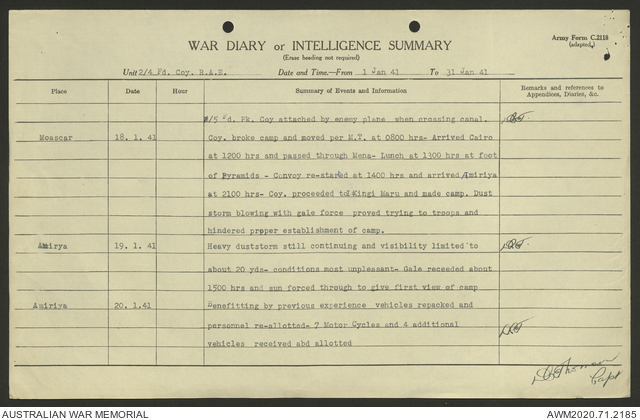 Army Form C.2118
(adapted)
WAR DIARY or INTELLIGENCE SUMMARY
(Erase heading not required)
Unit 2/4 Fd. Coy. R.A.E. Date and Time.—From 1 Jan 41 To 31 Jan 41
Place Date Hour Summary of Events and Information Remarks and references to Appendices, Diaries, &c.
2/5 Fd. Pk. Coy attached by enemy plane when crossing canal.
Moascar 18. 1. 41 Coy. broke camp and moved per M.T. at 0800 hrs- Arrived Cairo
at 1200 hrs and passed through Mena- Lunch at 1300 hrs at foot
of Pyramids - Convoy re-started at 1400 hrs and arrived Amiriya
at 2100 hrs- Coy. proceeded to Ikingi Maru and made camp. Dust
storm blowing with gale force proved trying to troops and
hindered proper establishment of camp.
Amirya 19. 1. 41 Heavy duststorm still continuing and visibility limited to
about 20 yds- conditions most unpleasant- Gale receeded about
1500 hrs and sun forced through to give first view of camp
Amiriya 20. 1.41 Benefitting by previous experience vehicles repacked and
personnel re-allotted- 7 Motor Cycles and 4 additional
vehicles received abd allotted
Capt
AUSTRALIAN WAR MEMORIAL AWM2020.71.2185